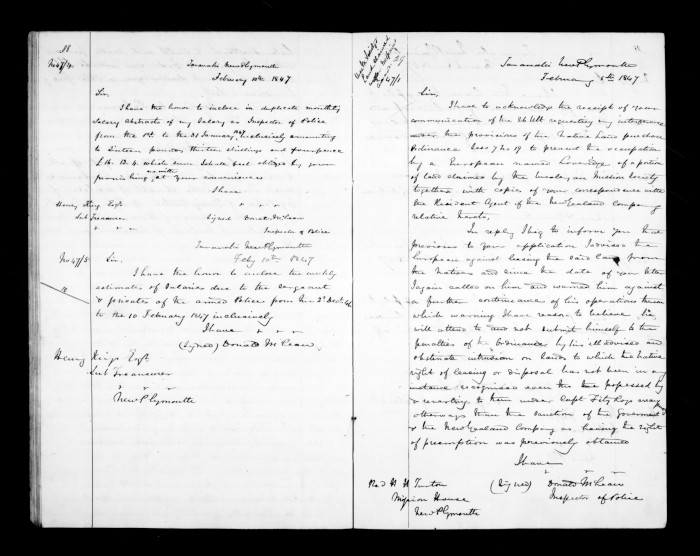 18
No 47/4
Taranaki New Plymouth
February 10th 1847
Sir,
I have the honor to inclose in duplicate monthly
Salary abstracts of my Salary as Inspector of Police
from the 1st to the 31 January inclusively amounting
to Sixteen pounds thirteen shillings and fourpence
£16.13.4. which sum I shall feel obliged by your
remitting
at your convenience
I have
Henry King Esqr
Sub Treasurer
Signed Donald McLean
Inspector of Police
Taranaki New Plymouth
Feby 10th 1847
No 47/5
Sir,
I have the honor to inclose the monthly
estimates of Salaries due to the Sergeant
& privates of the armed Police from the
to the 10 February 1847 inclusively
I have
(Signed) Donald McLean
Henry King Esqr
Sub Treasurer
New Plymouth
47/1
Taranaki New Plymouth
February 5th 1847
Sir,
I have to acknowledge the receipt of your
communication of the 26 Ult requesting my interference
under the provisions of the Native Land purchase
Ordinance Sess 7 No 19 to prevent the occupation
by a European named Loveridge of a portion
of land claimed by the Wesleyan Mission Society
together with copies of your correspondence with
the Resident Agent of the New Zealand Company
relative thereto,
In reply I beg to inform you that
previous to your application I advised the
European against leasing the said land from
the Natives and since the date of your letter
I again called on him and warned him against
a further continuance of his operations thereon
which warning I have reason to believe he
will attend to and not submit himself to the
penalties of the Ordinance by his ill advised and
obstinate intrusion on lands to which the native
right of leasing or disposal has not been in any
instance recognised even the
reverting to them under Capt Fitzroys
otherways than the sanction of the Government
& the New Zealand Company as having the right
of preemption was previously obtained
I have
Revd H H Turton
(Signed) Donald McLean
Mission House
Inspector of Police
New Plymouth